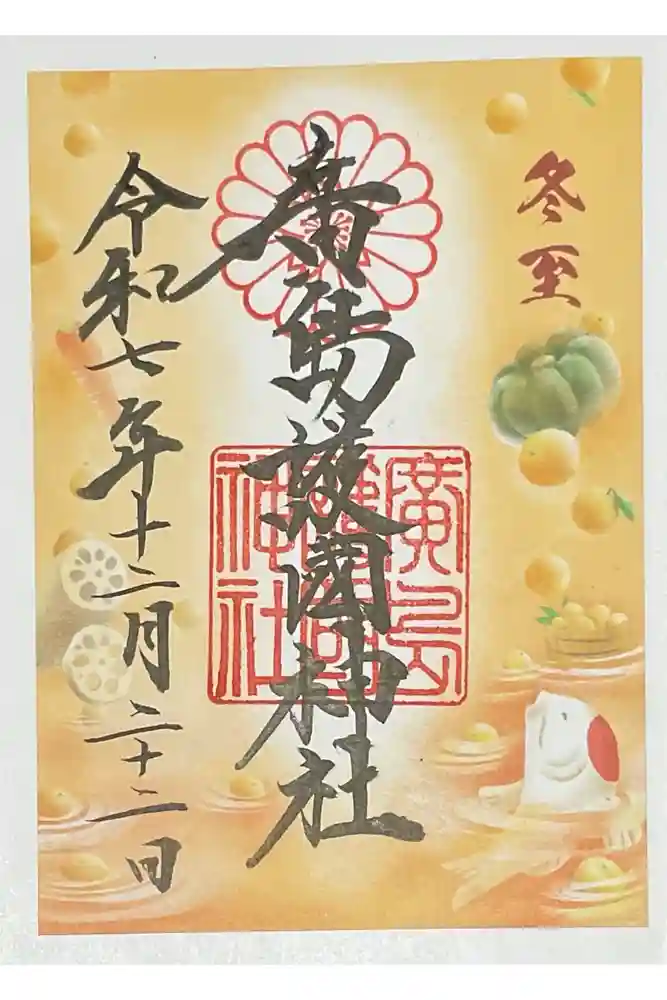 冬至
廣島護國神社
廣島護國神社
令和七年十二月二十二日